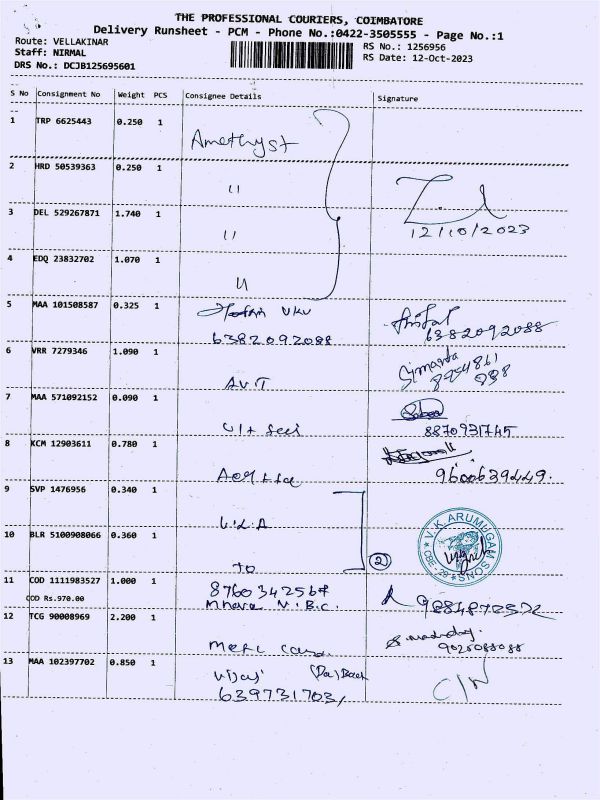 THE PROFESSIONAL COURIERS, COIMBATORE
Delivery Runsheet - PCM - Phone No.:0422-3505555 - Page No.:1
Route: VELLAKINAR
Staff: NIRMAL
DRS No.: DCJB125695601
RS No.: 1256956
RS Date: 12-Oct-2023
S No Consignment No Weight PCS Consignee Details Signature
1 TRP 6625443 0.250 1
Amethyst
2 HRD 50539363 0.250 1
"
3 DEL 529267871 1.740 1
"
12/10/2023
4 EDQ 23832702 1.070 1
"
5 MAA 101508587 0.325 1
6382092088 6382092088
6 VRR 7279346 1.090 1
AVT
7 MAA 571092152 0.090 1
8870931745
8 KCM 12903611 0.780 1
9600639449.
9 SVP 1476956 0.340 1
V.K. ARUMUGAM SONS
CBE-29
10 BLR 5100908066 0.360 1
2
11 COD 1111983527 1.000 1
COD Rs.970.00
N.B.C.
12 TCG 90008969 2.200 1
9025088088
13 MAA 102397702 0.850 1
6397317031
C/N